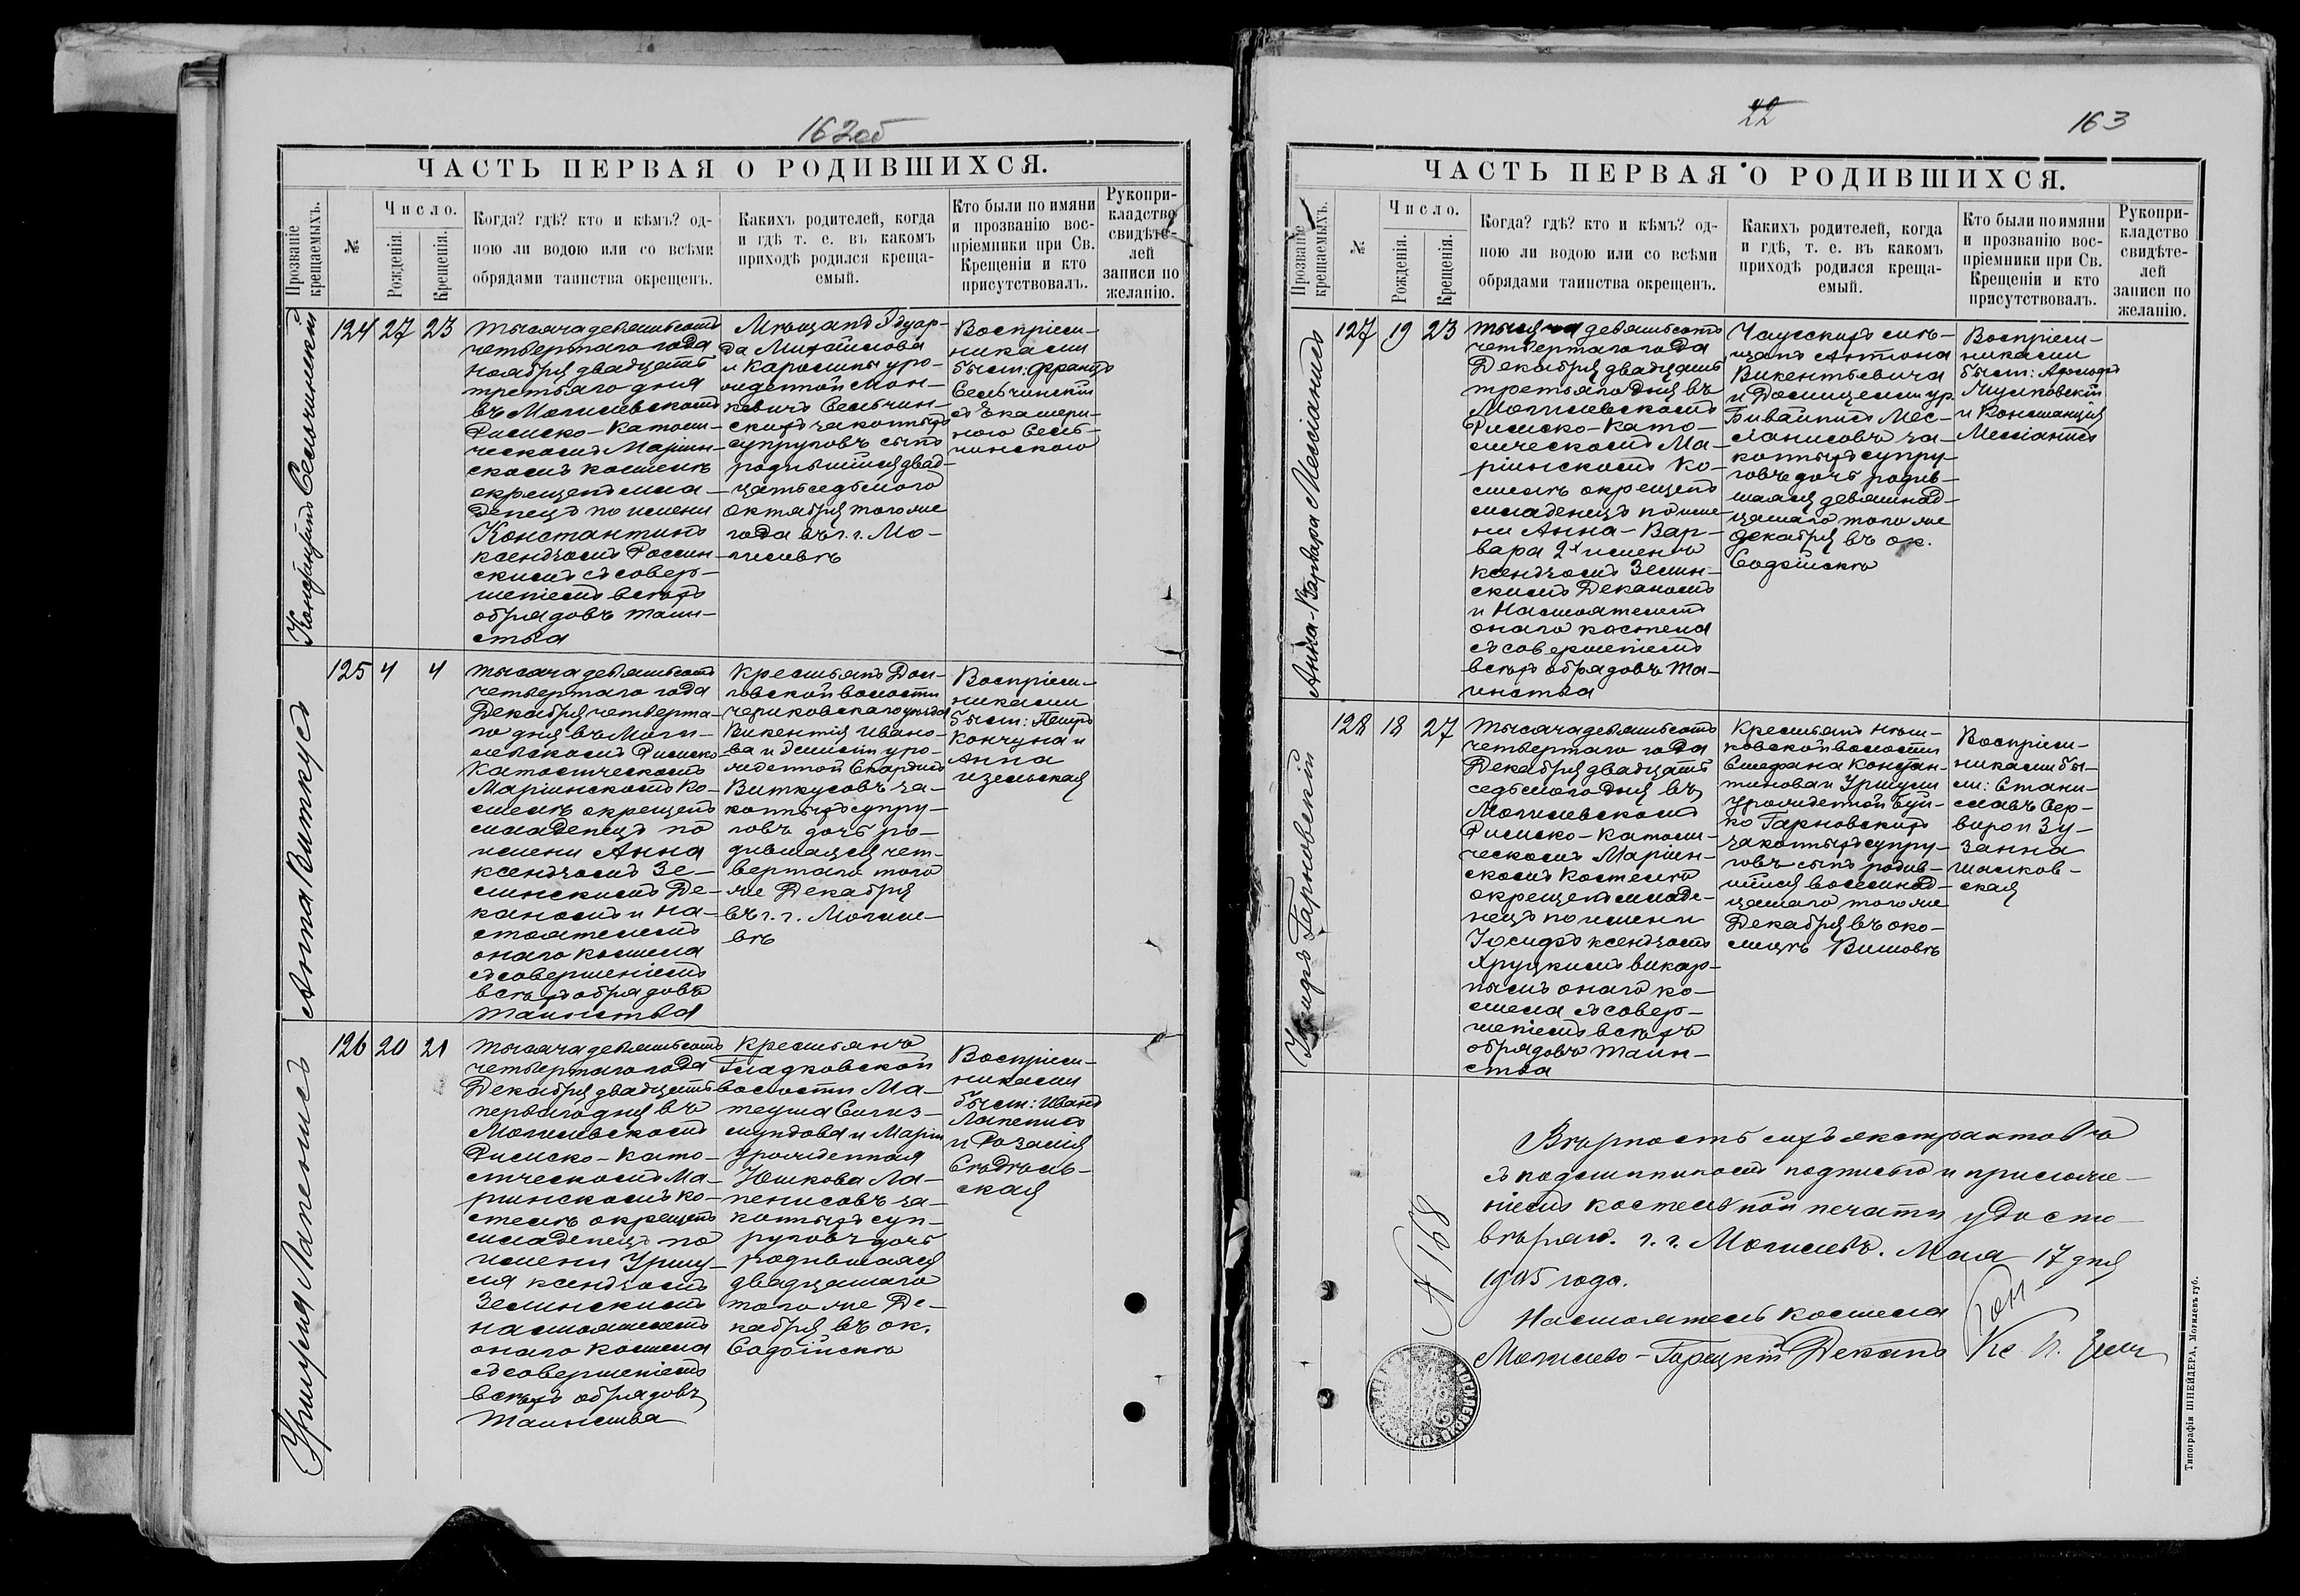 162об
ЧАСТЬ ПЕРВАЯ О РОДИВШИХСЯ.
Прозваніе крещаемыхъ.
№
Число.
Рожденія.
Крещенія.
Когда? гдѣ? кто и кѣмъ? од-
ною ли водою или со всѣми
обрядами таинства окрещенъ.
Какихъ родителей, когда
и гдѣ т. е. въ какомъ
приходѣ родился креща-
емый.
Кто были по имяни
и прозванію вос-
пріемники при Св.
Крещеніи и кто
присутствовалъ.
Рукопри-
кладство
свидѣте-
лей
записи по
желанію.
124 27 23
Тысяча девятьсотъ
четвертаго года
Ноября двадцать
третьяго дня
въ Могилевскомъ
Римско-Католи-
ческомъ Маріин-
скомъ костелѣ
окрещенъ мла-
денецъ по имени
Константинъ
ксендзомъ
скимъ съ совер-
шеніемъ всѣхъ
обрядовъ таин-
ства
Мѣщанъ Эдуар-
да Михайлова
и Каролины уро-
жденной Мон-
кевичъ Сельчин-
скихъ законныхъ
супруговъ сынъ
родившійся двад-
цать седьмого
Октября того же
года въ г. г. Мо-
гилевѣ
Воспріем-
никами
были: Францъ
Сельчинскій
съ Екатери-
ною Сель-
чинскою
Анна Виткусъ
125 4 4
Тысяча девятьсотъ
четвертаго года
Декабря четверта-
го дня въ Моги-
левскомъ Римско
Католическомъ
Маріинскомъ Ко-
стелѣ окрещенъ
младенецъ по
имени Анна
ксендзомъ Зе-
линскимъ Де-
каномъ и На-
стоятелемъ
онаго костела
съ совершеніемъ
всѣхъ обрядовъ
таинства
Крестьянъ Дол-
говской волости
Чериковскаго уѣзда
Викентія Ивано-
ва и уро-
жденной
Виткусовъ за-
конныхъ супру-
говъ дочь ро-
дившаяся чет-
вертаго того
же Декабря
въ г. г. Могиле-
вѣ
Воспріем-
никами
были: Петръ
Кончуна и
Анна
126 20 21
Тысяча девятьсотъ
четвертаго года
Декабря двадцать
перваго дня въ
Могилевскомъ
Римско-Като-
лическомъ Ма-
ріинскомъ ко-
стелѣ окрещенъ
младенецъ по
имени Уршу-
ля ксендзомъ
Зелинскимъ
настоятелемъ
онаго костела
съ совершеніемъ
всѣхъ обрядовъ
таинства
Крестьянъ
Гладковской
волости Ма-
теуша Сигиз-
мундова и Маріи
урожденная
Юшкова Ла-
пенисовъ за-
конныхъ суп-
руговъ дочь
родившаяся
двадцатаго
того же Де-
кабря въ ок.
Содойскѣ
Воспріем-
никами
были: Иванъ
Лапенисъ
и Розалія
ская
Уршуля Лапенисъ
22
163
ЧАСТЬ ПЕРВАЯ О РОДИВШИХСЯ.
Прозваніе крещаемыхъ.
№
Число.
Рожденія.
Крещенія.
Когда? гдѣ? кто и кѣмъ? од-
ною ли водою или со всѣми
обрядами таинства окрещенъ.
Какихъ родителей, когда
и гдѣ, т. е. въ какомъ
приходѣ родился креща-
емый.
Кто были по имяни
и прозванію вос-
пріемники при Св.
Крещеніи и кто
присутствовалъ.
Рукопри-
кладство
свидѣте-
лей
записи по
желанію.
127 19 23
Тысяча девятьсотъ
четвертаго года
Декабря двадцать
третьяго дня въ
Могилевскомъ
Римско-Като-
лическомъ Ма-
ріинскомъ Ко-
стелѣ окрещенъ
младенецъ по име-
ни Анна-Вар-
вара 2х именъ
ксендзомъ Зелин-
скимъ Деканомъ
и Настоятелемъ
онаго костела
съ совершеніемъ
всѣхъ обрядовъ Та-
инства
Чаусскихъ мѣ-
щанъ Антона
Викентьевича
и ур.
Мес-
ланисовъ за-
конныхъ супру-
говъ дочь родив-
шаяся девятнад-
цатаго того же
Декабря въ ок.
Содойскѣ
Воспріем-
никами
были:
и Констанція
128 18 27
Тысяча девятьсотъ
четвертаго года
Декабря двадцать
седьмого дня въ
Могилевскомъ
Римско-Католи-
ческомъ Маріин-
скомъ Костелѣ
окрещенъ младе-
нецъ по имени
Іосифъ ксендзомъ
Хруцкимъ викар-
нымъ онаго ко-
стела съ совер-
шеніемъ всѣхъ
обрядовъ таин-
ства
Крестьянъ
ковской волости
Стефана Констан-
тинова и Уршули
урожденной Буй-
ко Гарновскихъ
законныхъ супру-
говъ сынъ родив-
шійся восемнад-
цатаго того же
Декабря въ око-
лицѣ Вишовѣ
Воспріем-
никами бы-
ли: Стани-
славъ Вер-
биро и Зу-
занна
ская
Іосифъ Гарновскій
Вѣрность сихъ экстрактовъ
съ подлинникомъ подписью и приложе-
ніемъ костельной печати удосто-
вѣряю. г. г. Могилевъ. Мая 17 дня
1905 года.
Настоятель костела
Могилево-Горецкій Деканъ Кс.
№ 168
Типографія ШНЕЙДЕРА, Могилевъ губ.